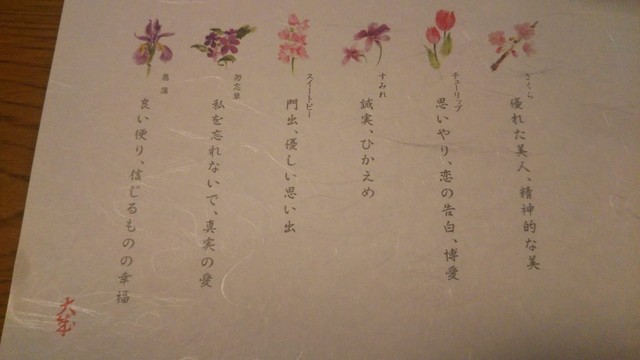 さくら
優れた美人、精神的な美
チューリップ
思いやり、恋の告白、博愛
すみれ
誠実、ひかえめ
スイートピー
門出、優しい思い出
勿忘草
私を忘れないで、真実の愛
菖蒲
良い便り、信じるものの幸福